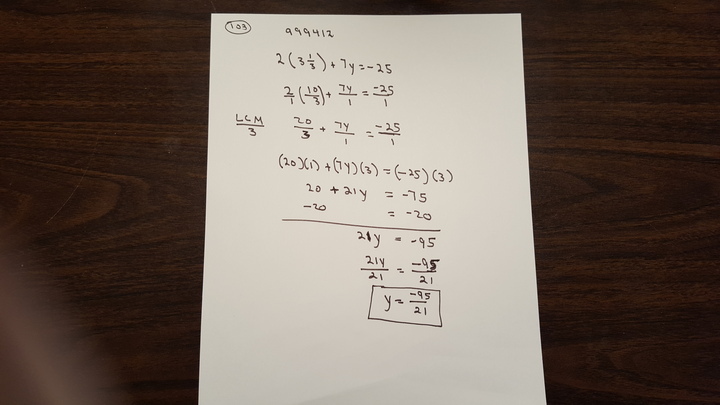 103
999412
2 (3 1/3) + 7y = -25
2/1 (10/3) + 7y/1 = -25/1
LCM/3 20/3 + 7y/1 = -25/1
(20)(1) + (7y)(3) = (-25)(3)
20 + 21y = -75
-20 = -20
21y = -95
21y/21 = -95/21
y = -95/21